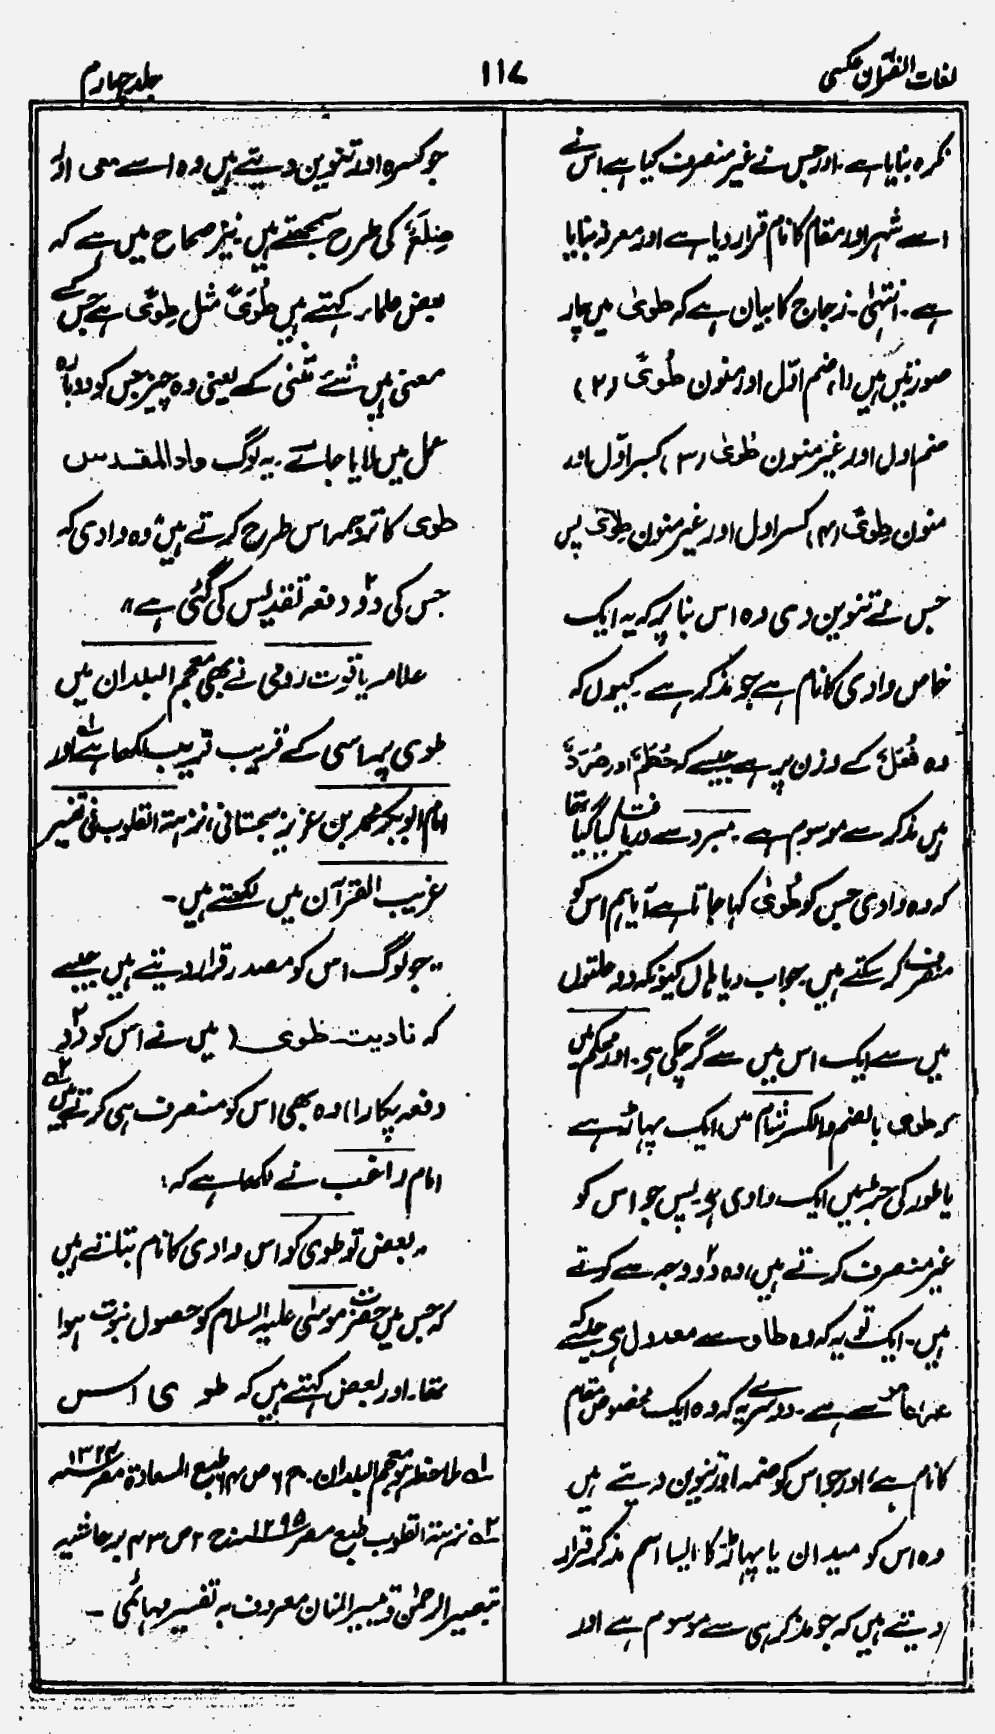 لغات القرآن عکسی
۱۱۷
جلد چہارم
نکرہ بنایا ہے۔ اور جس نے غیر منصرف کیا ہے اس نے
اسے شہر اور مقام کا نام قرار دیا ہے اور معرفہ بنایا
ہے۔ انتہیٰ۔ زجاج کا بیان ہے کہ طویٰ میں چار
صورتیں ہیں (۱) ضم اوّل اور منون طُویً (۲)
ضم اول اور غیر منون طُویٰ (۳) کسر اوّل اور
منون طِویً (۴) کسر اول اور غیر منون طِویٰ پس
جس نے تنوین دی وہ اس بنا پر کہ یہ ایک
خاص وادی کا نام ہے جو مذکر ہے۔ کیوں کہ
وہ فُعَلٌ کے وزن پر ہے جیسے کہ حُطَمٌ اور صُرَدٌ
ہیں مذکر سے موسوم ہے۔ مبرد سے دریافت کیا گیا تھا
کہ وہ وادی جس کو طُویٰ کہا جاتا ہے آیا ہم اس کو
منصرف کر سکتے ہیں۔ جواب دیا ہاں کیونکہ دو علتوں
میں سے ایک اس میں سے گر چکی ہی۔ اور محکم میں
ہر طوی بالضم والکسر شام میں ایک پہاڑ ہے
یا طور کی جڑ میں ایک وادی ہو پس جو اس کو
غیر منصرف کرتے ہیں، وہ دو وجہ سے کرتے
ہیں۔ ایک تو یہ کہ وہ طاوٍ سے معدول ہی جیسے کہ
عمر عامر سے ہے۔ دوسرے یہ کہ وہ ایک مخصوص مقام
کا نام ہے، اور جو اس کو ضمہ اور تنوین دیتے ہیں
وہ اس کو میدان یا پہاڑ کا ایسا اسم مذکر قرار
دیتے ہیں کہ جو مذکر ہی سے موسوم ہے اور
جو کسرہ اور تنوین دیتے ہیں وہ اسے معی اور
ضِلَعٌ کی طرح سمجھتے ہیں۔ نیز صحاح میں ہے کہ
بعض علماء کہتے ہیں طُویً مثل طِویً ہے جس کے
معنی ہیں شئے مثنی کے یعنی وہ چیز جس کو دوبارہ
عمل میں لایا جائے۔ یہ لوگ واد المقدس
طوی کا ترجمہ اس طرح کرتے ہیں وہ وادی کہ
جس کی دو ۲ دفعہ تقدیس کی گئی ہے"
علامہ یاقوت رومی نے بھی معجم البلدان میں
طوی پر اسی کے قریب قریب لکھا ہے ۱؎ اور
امام ابوبکر محمد بن عزیز سجستانی، نزہتہ القلوب فی تفسیر
غریب القرآن میں لکھتے ہیں۔
"جو لوگ اس کو مصدر قرار دیتے ہیں جیسے
کہ نادیت طوی (میں نے اس کو دو ۲
دفعہ پکارا) وہ بھی اس کو منصرف ہی کرتے ہیں ۲؎
امام راغب نے لکھا ہے کہ:
"بعض تو طوی کو اس وادی کا نام بتلاتے ہیں
کہ جس میں حضرت موسیٰ علیہ السلام کو حصول نبوت ہوا
تھا۔ اور بعض کہتے ہیں کہ طو ی اس
۱؎ ملاحظہ ہو معجم البلدان۔ ج ۶ ص ۶۴ طبع السعادۃ مصر ۱۳۲۴ سنہ
۲؎ نزہتہ القلوب طبع مصر ۱۲۹۵ سنہ ج ۲ ص ۴۳ بر حاشیہ
تبصیر الرحمٰن و تیسیر المنان معروف بہ تفسیر مہائمی۔